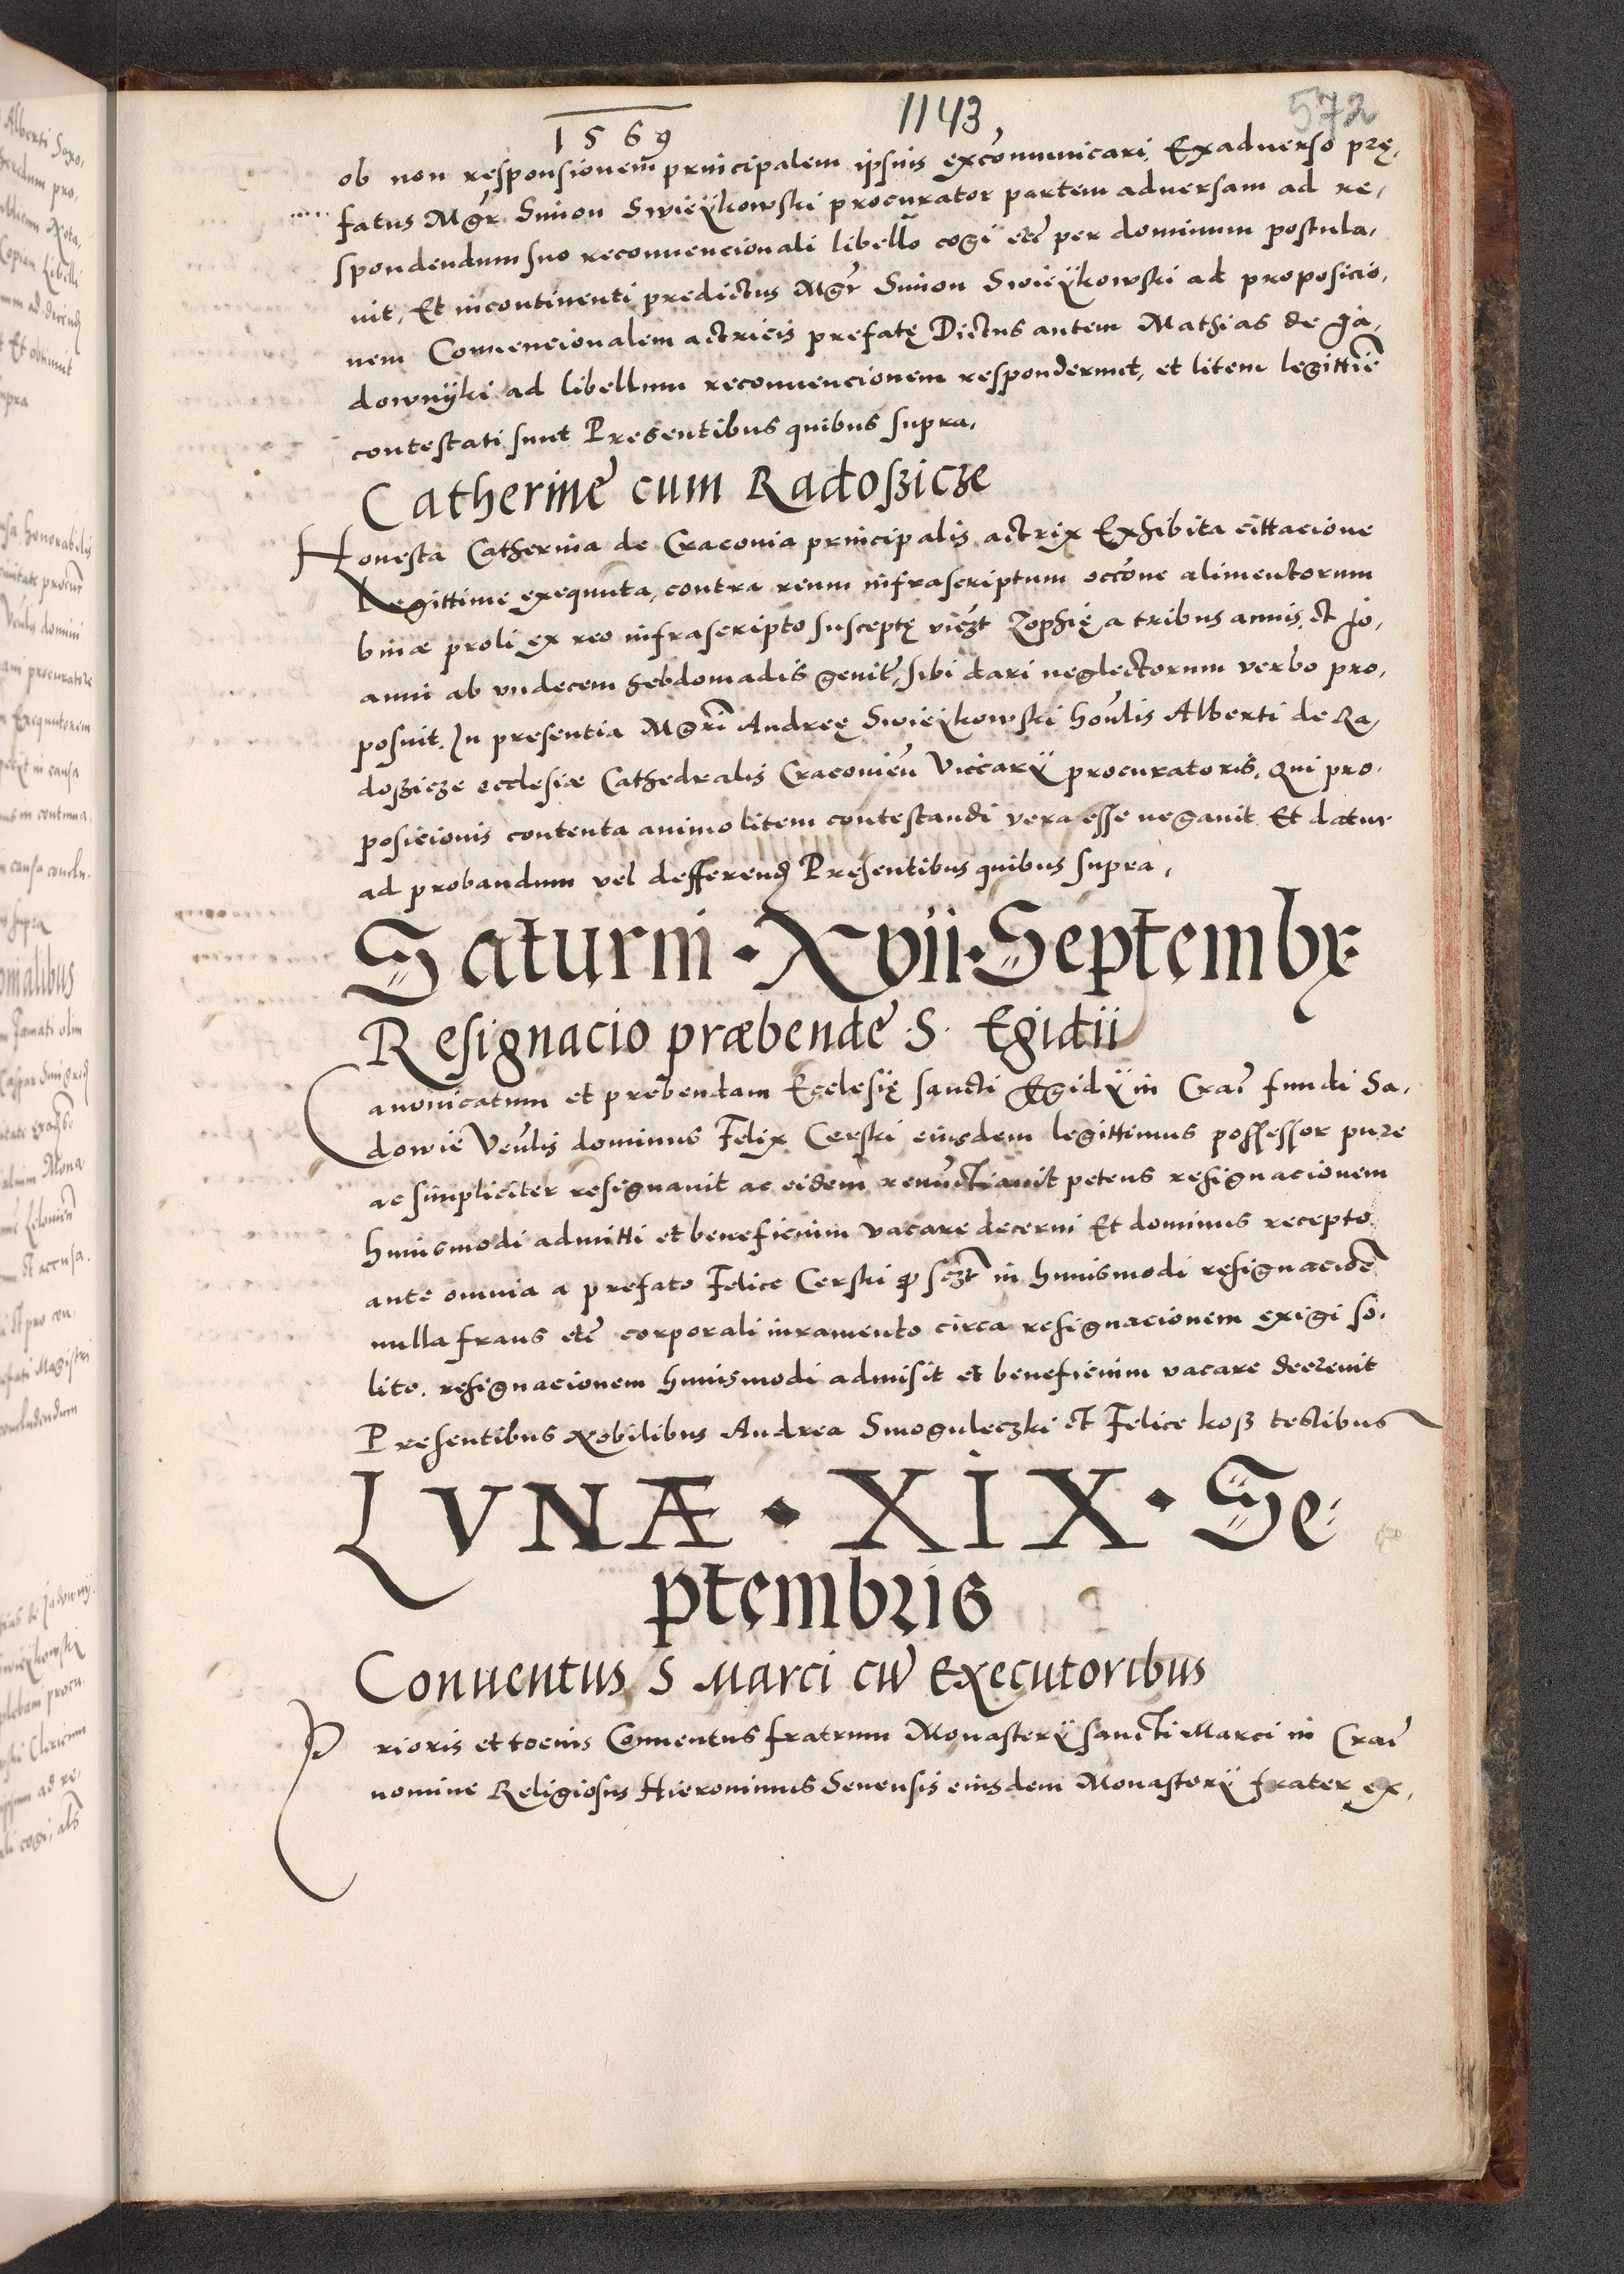 1569
1143
572
ob non responsionem principalem ipsius excōmunicari. Exadverso prę,
fatus Mgr̄ Simon Swieÿkowski procurator partem adversam ad re,
spondendum suo reconvencionali libello cogi etc̄ per dominum postula,
vit, Et incontinenti predictus Mgr̄ Simon Swieÿkowski ad proposicio,
nem Convencionalem actricis prefatę Dictus autem Mathias de Ja,
downÿki ad libellum reconvencionem responderunt, et litem legittiē
contestati sunt Presentibus quibus supra,
Catherinę cum Radoßicze
Honesta Catherina de Cracovia principalis actrix Exhibita cittacione
Legittime exequuta, contra reum infrascriptum occōne alimentorum
binæ proli ex reo infrascripto susceptę viczt Zophię a tribus annis, et Jo,
anni ab undecem hebdomadis genitę, sibi dari neglectorum verbo pro,
posuit. In presentia Mgr̄i Andreę Swieÿkowski hon̄lis Alberti de Ra,
doßicze ecclesiæ Cathedralis Cracovien̄ Viccarÿ procuratoris, qui pro,
posicionis contenta animo litem contestandi vera esse negavit Et datur
ad probandum vel defferend Presentibus quibus supra,
Saturni · Xvii · Septembr
Resignacio præbendę · S · Egidii
Canonicatum et prebendam Ecclesię sancti Egidÿ in Crac̄ fundi Sa,
dowie Ven̄lis dominus Felix Cerski eiusdem legittimus possessor pure
ac simpliciter resignavit ac eidem renunctiavit petens resignacionem
huiusmodi admitti et beneficium vacare decerni Et dominus recepto
ante omnia a prefato Felice Cerski ꝙ sczt in huiusmodi resignacioē
nulla fraus etc̄ corporali iuramento circa resignacionem exigi so,
lito, resignacionem huiusmodi admisit et beneficium vacare decrevit
Presentibus Nobilibus Andrea Smoguleczki et Felice koß testibus
LVNÆ · XIX · Se,
ptembris
Conventus S Marci cū Executoribus
Prioris et tocius Conventus fratrum Monasterÿ sancti Marci in Crac̄
nomine Religiosus Hieronimus Senensis eiusdem Monasterÿ frater ex,